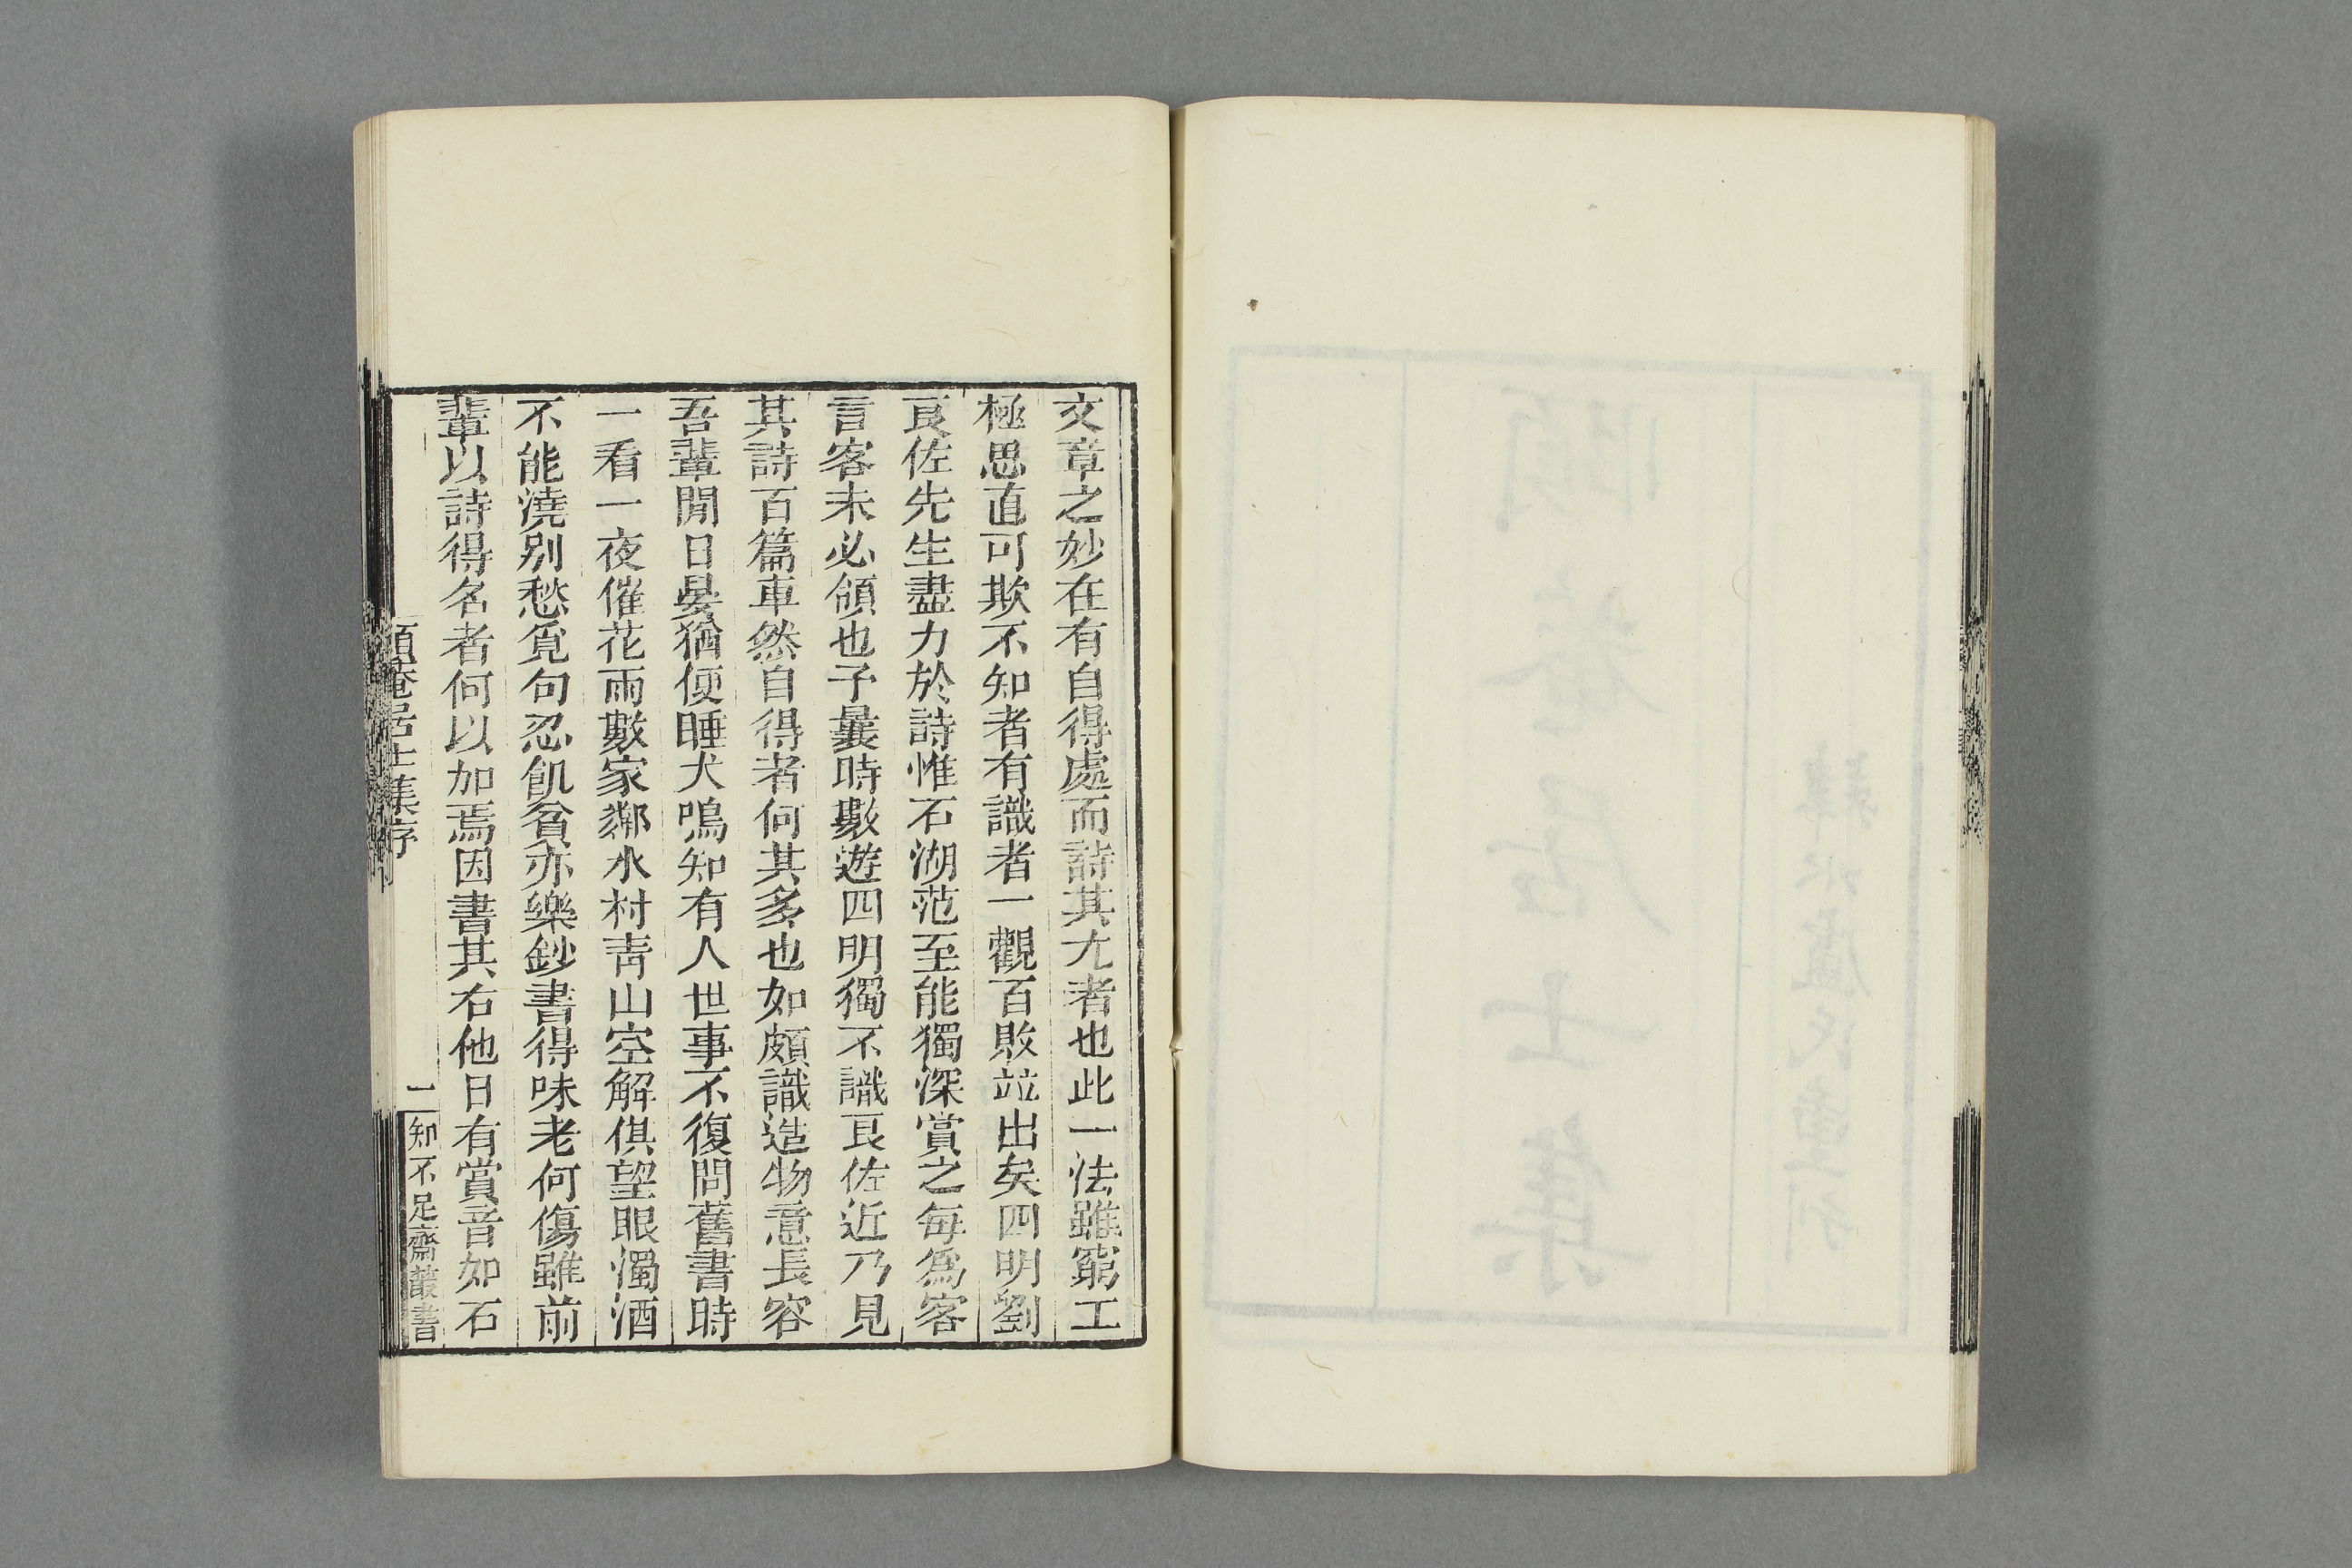 文章之妙在有自得處而詩其尢者也此一法雖窮工
極思直可欺不知者有識者一觀百敗竝出矣四明劉
良佐先生盡力於詩惟石湖范至能獨深賞之每爲客
言客未必頷也予曩時數遊四明獨不識良佐近乃見
其詩百篇車然自得者何其多也如頗識造物意長容
吾輩閒日晏猶便睡犬鳴知有人世事不復問舊書時
一看一夜催花雨數家鄰水村靑山空解供望眼濁酒
不能澆别愁覓句忍飢貧亦樂鈔書得味老何傷雖前
輩以詩得名者何以加焉因書其右他日有賞音如石
頤菴居士集序
一
知不足齋叢書